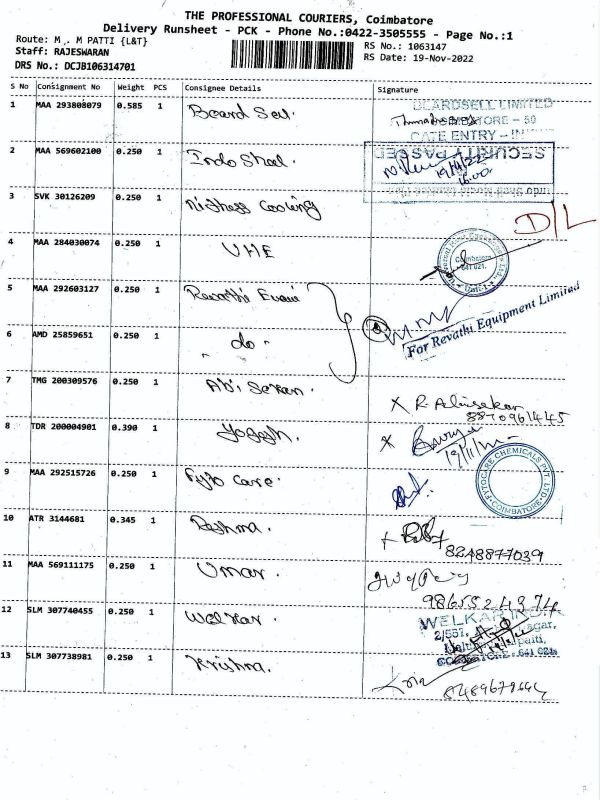 THE PROFESSIONAL COURIERS, Coimbatore
Delivery Runsheet - PCK - Phone No.:0422-3505555 - Page No.:1
Route: M . M PATTI {L&T}
RS No.: 1063147
Staff: RAJESWARAN
RS Date: 19-Nov-2022
DRS No.: DCJB106314701
S No Consignment No Weight PCS Consignee Details Signature
1 MAA 293808079 0.585 1 Board Sell.
BEARDSELL LIMITED
COIMBATORE - 50
GATE ENTRY - IN
2 MAA 569602100 0.250 1 Indo Shell.
SECURITY PASSED
19/11/22
16.00
3 SVK 30126209 0.250 1 Cooling
D/L
4 MAA 284030074 0.250 1 UHE
Coimbatore
641 021.
Unit-1
5 MAA 292603127 0.250 1 Revathi
For Revathi Equipment Limited
6 AMD 25859651 0.250 1 - do -
7 TMG 200309576 0.250 1 Abi,
X R.
8870961445
8 TDR 200004901 0.390 1 Yogesh.
X
19/11/22
9 MAA 292515726 0.250 1 Fyto Care.
FYTOCARE CHEMICALS PVT. LTD.
COIMBATORE
10 ATR 3144681 0.345 1 Reshma.
8248877039
11 MAA 569111175 0.250 1 Umar.
9865524374
12 SLM 307740455 0.250 1 Welkar.
WELKAR
13 SLM 307738981 0.250 1 Krishna.